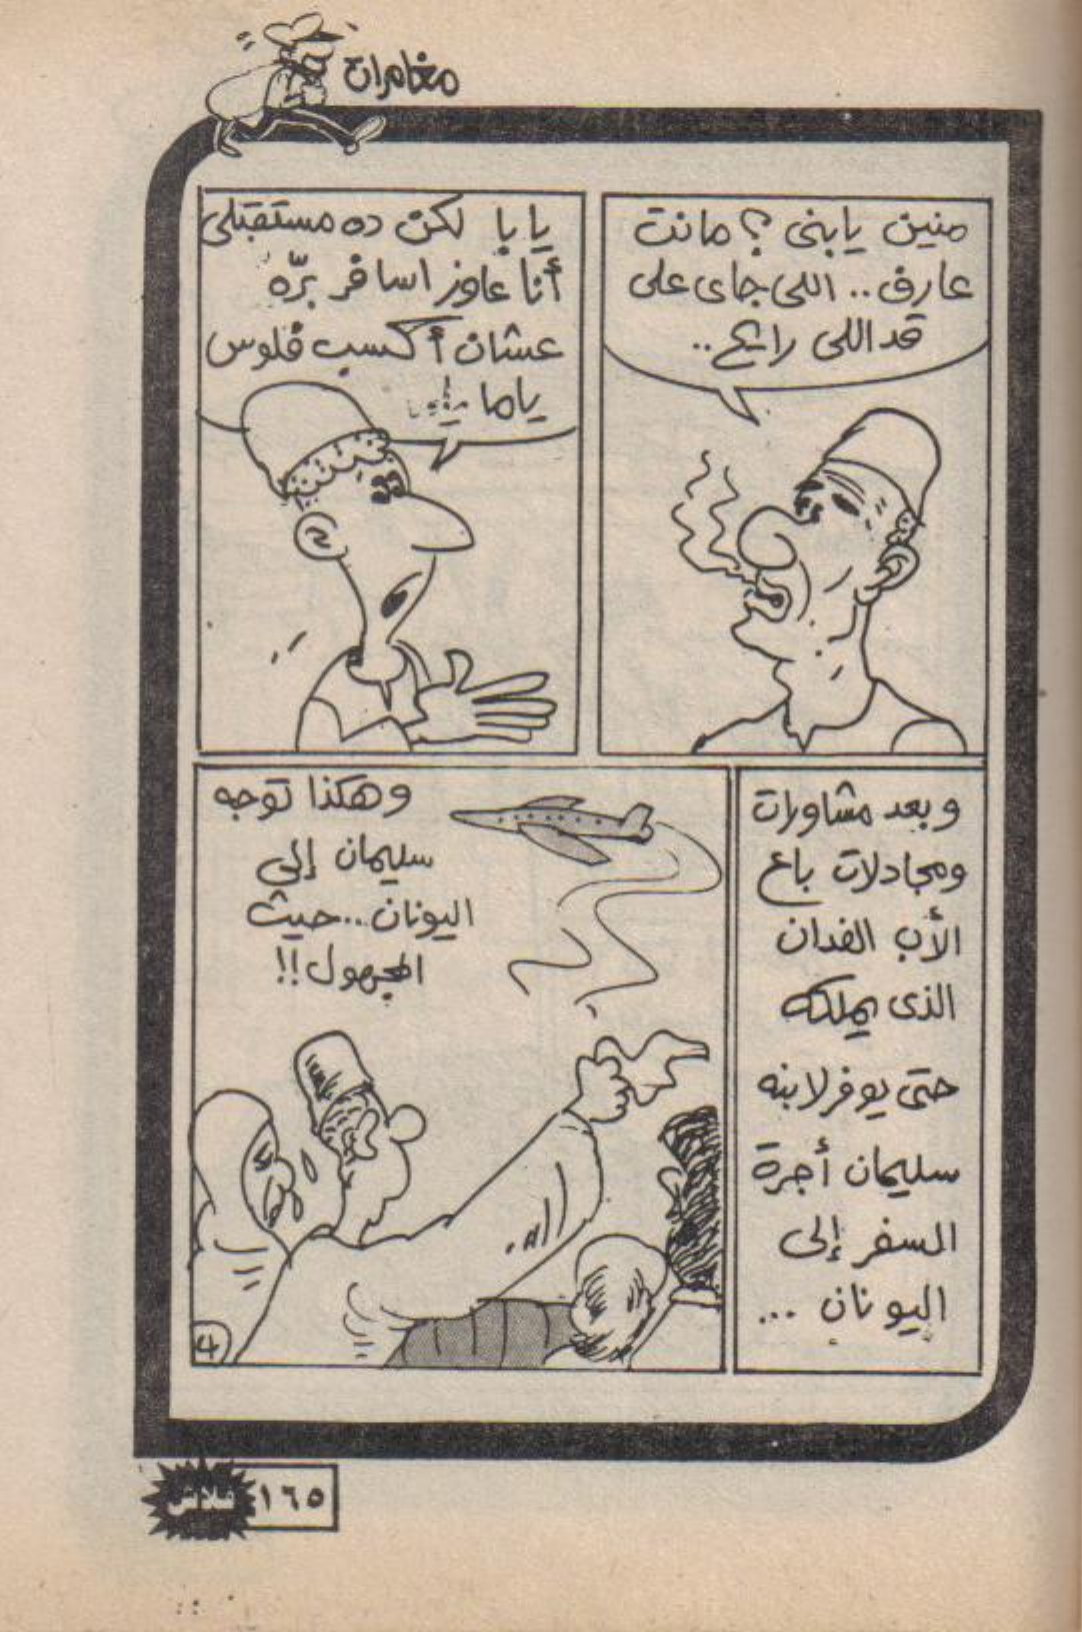 مغامرات
منين يابنى ؟ مانت
عارف.. اللى جاى على
قد اللى رايح..
يابا لكن ده مستقبلى
أنا عاوز اسافر برّه
عشان أكسب فلوس
ياما
وبعد مشاورات
ومجادلات باع
الأب الفدان
الذى يملكه
حتى يوفر لابنه
سليمان أجرة
السفر إلى
اليونان ...
وهكذا توجه
سليمان إلى
اليونان...حيث
المجهول!!
٤
فلاش
١٦٥